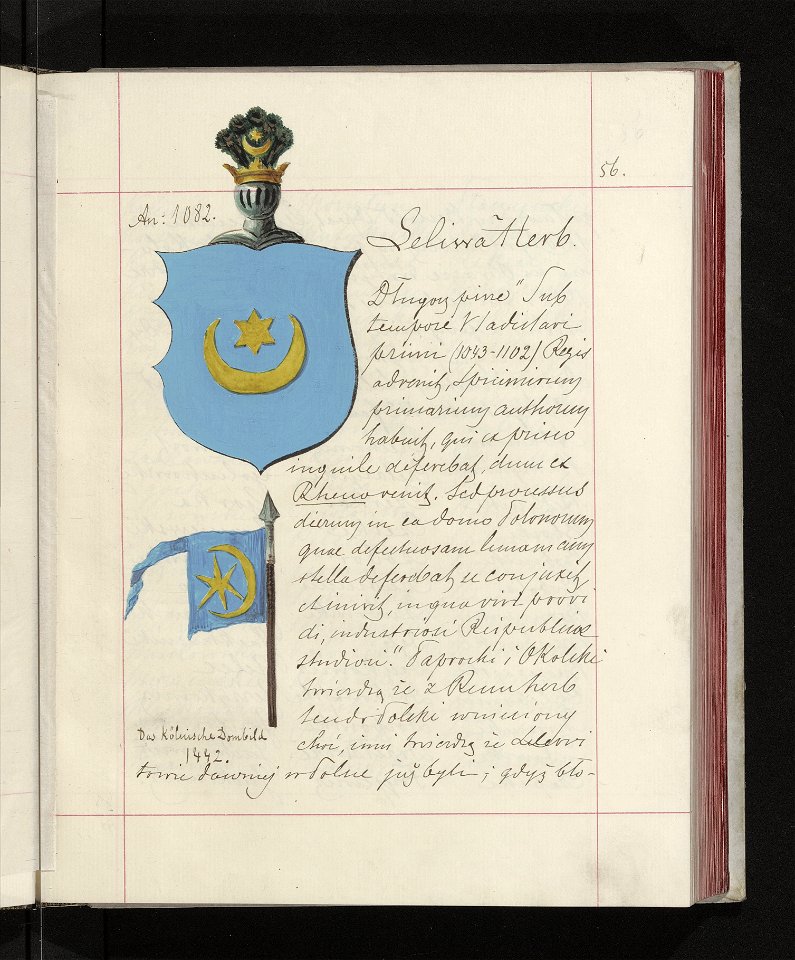 56.
An: 1082.
Leliwa Herb.
Długosz pisze "Sub
tempore Vladislavi
primi (1043-1102) Regis
advenit, Spicimirum
primarium authorum
habuit, qui ex prisio
inquile deferebat, dum ex
Rheno venit. Sed processus
dierum in ea domo Polonorum
quae defectuosam lunam cum
stella deferebat se conjuxit
et inivit, in qua viri provi
di, industriosi Reipublicae
studiosi." Paprocki i Okolski
twierdzą że z Renu herb
ten do Polski wniesiony
choć, inni twierdzą że Leliwi
towie dawniej w Polsce już byli; gdyż bło-
Das Kölnische Dombild
1442.